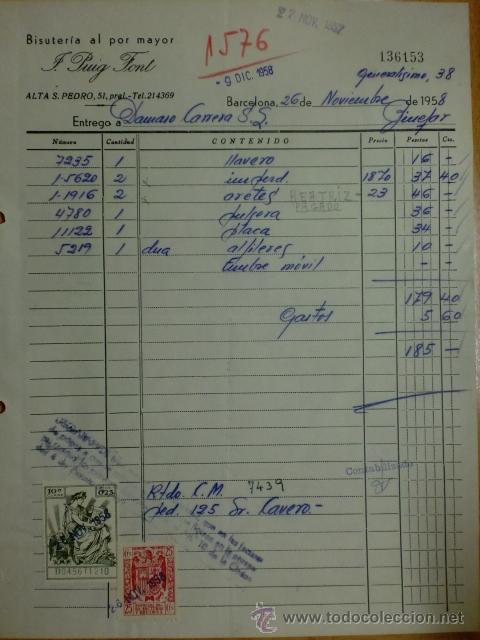 27 NOV. 1958
Bisutería al por mayor
J. Puig Font
1576
- 9 DIC. 1958
136153
Generalísimo, 38
ALTA S. PEDRO, 51, pral.-Tel. 214369
Barcelona, 26 de Noviembre de 1958
Entrego a Damaso Carrera S.L. Binefar
Número Cantidad CONTENIDO Precio Pesetas Cts.
7235 1 llavero 16 -
1-5620 2 imperd. 1870 37 40
1-1916 2 aretes 23 46 -
4780 1 pulsera 36 -
11122 1 placa 34 -
5219 1 dna alfileres 10 -
timbre móvil - -
PAGADO
179 40
Gastos 5 60
185 -
Contabilizado
Rtdo. C.M. 7439
Ped. 195 Sr. Cavero.-
0'25
26 NOV. 1958
25 25
todocoleccion.net